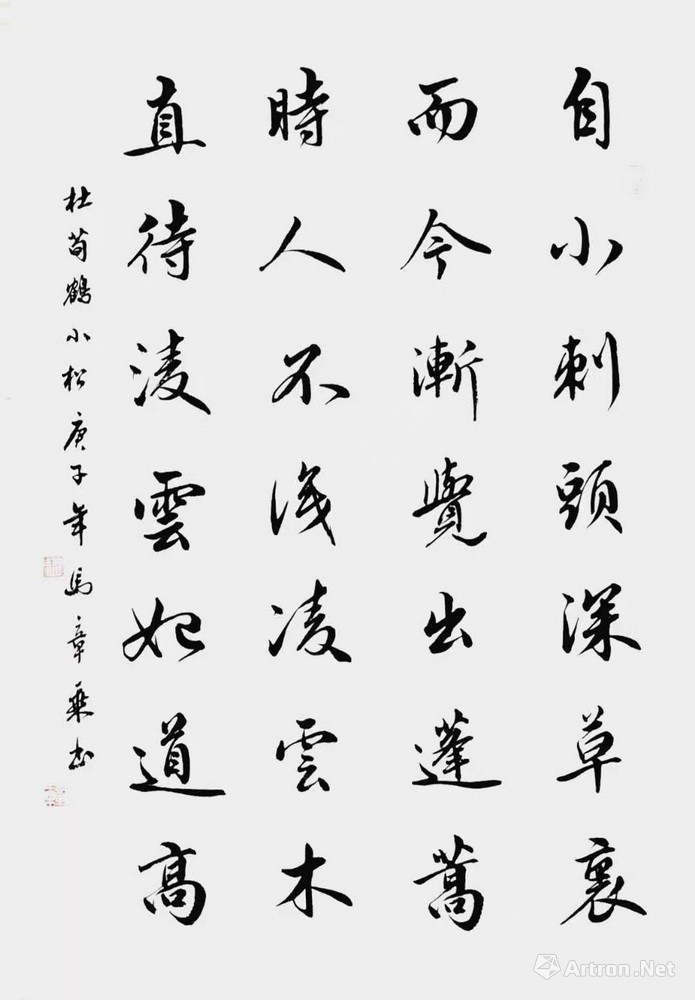 自小刺頭深草裏
而今漸覺出蓬蒿
時人不識凌雲木
直待淩雲始道高
杜荀鶴小松庚子年馬章乘書
Artron.Net